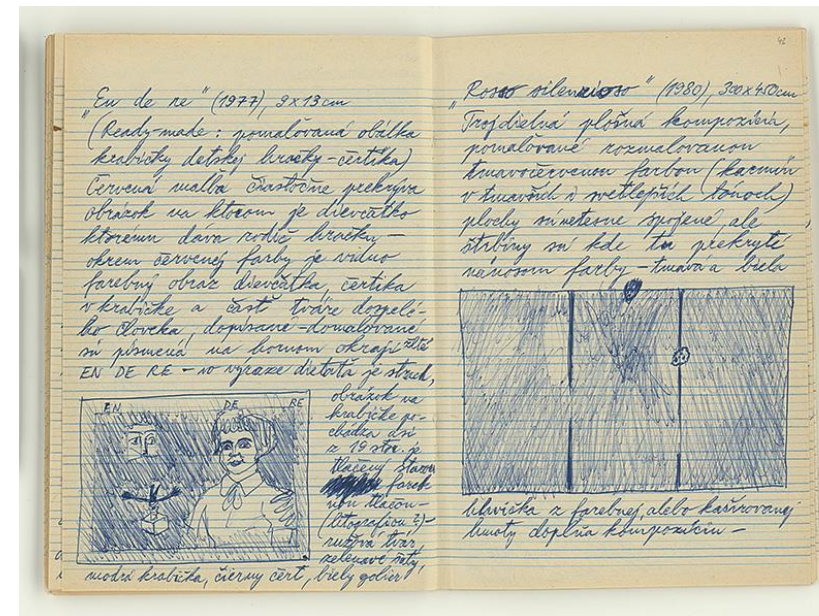 „En de re" (1977), 9x13cm
(Ready-made: pomaľovaná obálka
krabičky detskej hračky-čertíka)
Červená maľba čiastočne prekrýva
obrázok na ktorom je dievčatko
ktorému dáva rodič hračku –
okrem červenej farby je vidno
farebný obraz dievčatka, čertíka
v krabičke a časť tváre dospelé-
ho človeka, dopísané-domaľované
sú písmená na hornom okraji žlté
EN DE RE – vo výraze dieťaťa je strach,
obrázok na
krabičke po-
chádza asi
z 19 stor. je
tlačený starou
fareb
nou tlačou-
(litografiou?)-
ružová tvár,
zelenavé šaty,
modrá krabička, čierny čert, biely golier
EN DE RE
42
„Rosso silenzioso" (1980), 300x450cm
Trojdielná plošná kompozícia,
pomaľované rozmaľovanou
tmavočervenou farbou (karmín
v tmavších i svetlejších tónoch)
plochy sú netesne spojené, ale
štrbiny sú kde tu prekryté
nánosom farby – tmavá a biela
z farebnej alebo kašírovanej
hmoty doplňa kompozíciu –